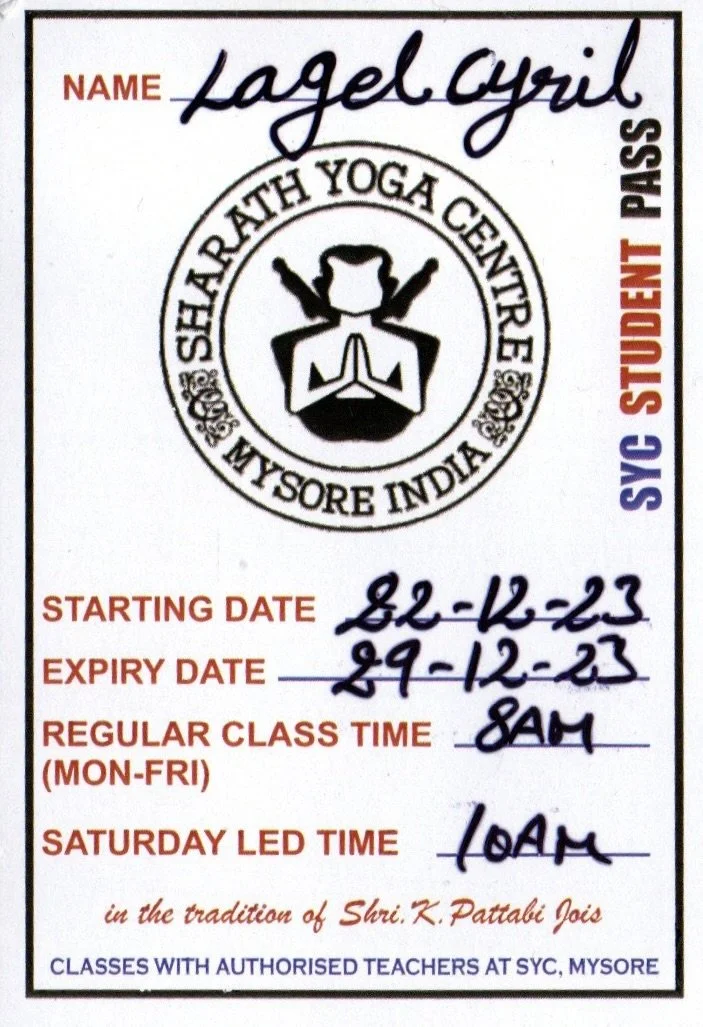 NAME Lagel Cyril
SHARATH YOGA CENTRE
MYSORE INDIA
SYC STUDENT PASS
STARTING DATE 22-12-23
EXPIRY DATE 29-12-23
REGULAR CLASS TIME 8AM
(MON-FRI)
SATURDAY LED TIME 10AM
in the tradition of Shri. K. Pattabi Jois
CLASSES WITH AUTHORISED TEACHERS AT SYC, MYSORE